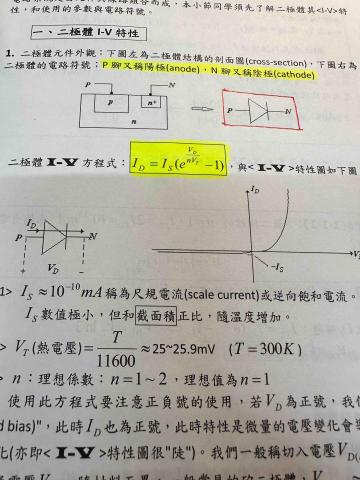 性，和使用的參數與電路符號。
一、二極體 I-V 特性
1. 二極體元件外觀：下圖左為二極體結構的剖面圖(cross-section)，下圖右為
二極體的電路符號：P 腳又稱陽極(anode)，N 腳又稱陰極(cathode)
P N
p n+
n
P N
二極體 I-V 方程式：I_D = I_S(e^{V_D/nV_T} -1)，與< I-V >特性圖如下圖
I_D
I_D
P N
+ V_D -
-I_S
1> I_S ≈10^{-10} mA 稱為尺規電流(scale current)或逆向飽和電流。
I_S 數值極小，但和截面積正比，隨溫度增加。
> V_T (熱電壓)= T/11600 ≈25~25.9mV (T = 300K)
> n：理想係數：n = 1 ~ 2，理想值為 n = 1
使用此方程式要注意正負號的使用，若 V_D 為正號，我們
d bias)"，此時 I_D 也為正號，此時特性是微量的電壓變化會
化(亦即< I-V >特性圖很"陡")。我們一般稱切入電壓 V_D(